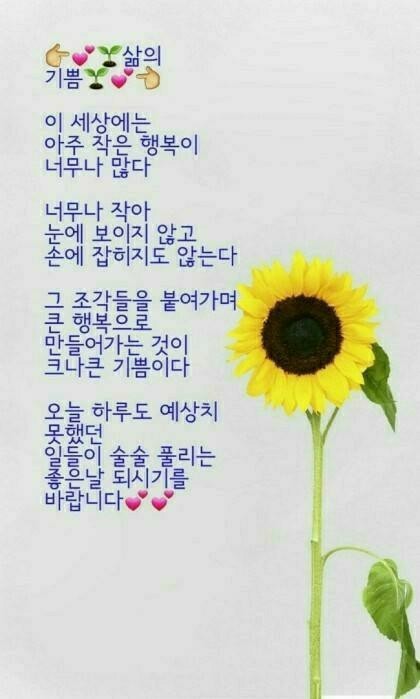 👉💕🌱삶의
기쁨🌱💕👈
이 세상에는
아주 작은 행복이
너무나 많다
너무나 작아
눈에 보이지 않고
손에 잡히지도 않는다
그 조각들을 붙여가며
큰 행복으로
만들어가는 것이
크나큰 기쁨이다
오늘 하루도 예상치
못했던
일들이 술술 풀리는
좋은날 되시기를
바랍니다💕💕